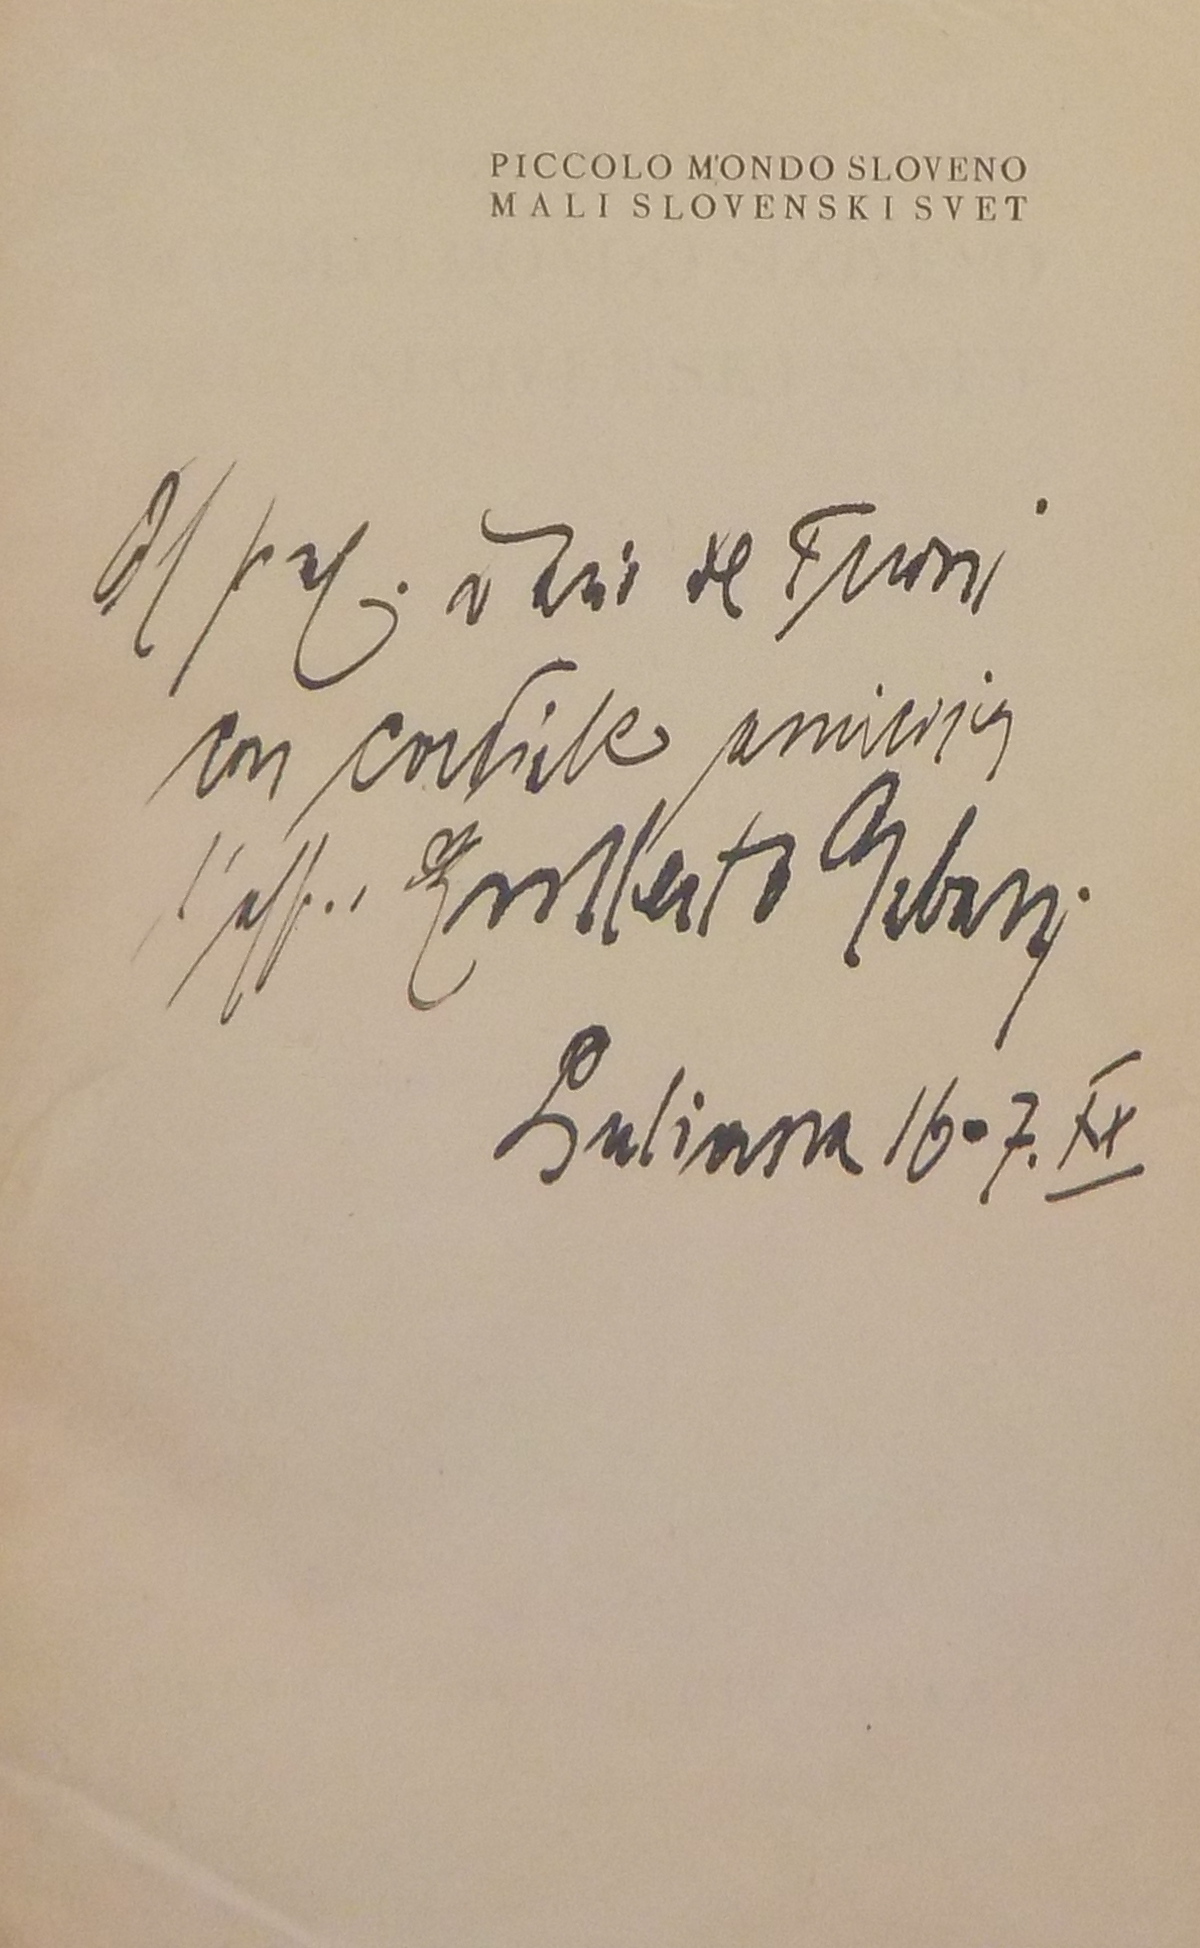 PICCOLO MONDO SLOVENO
MALI SLOVENSKI SVET
Al prof. de Tuoni
con cordiale amicizia
l'aff. Umberto Urbani
Lubiana 16-7. XX